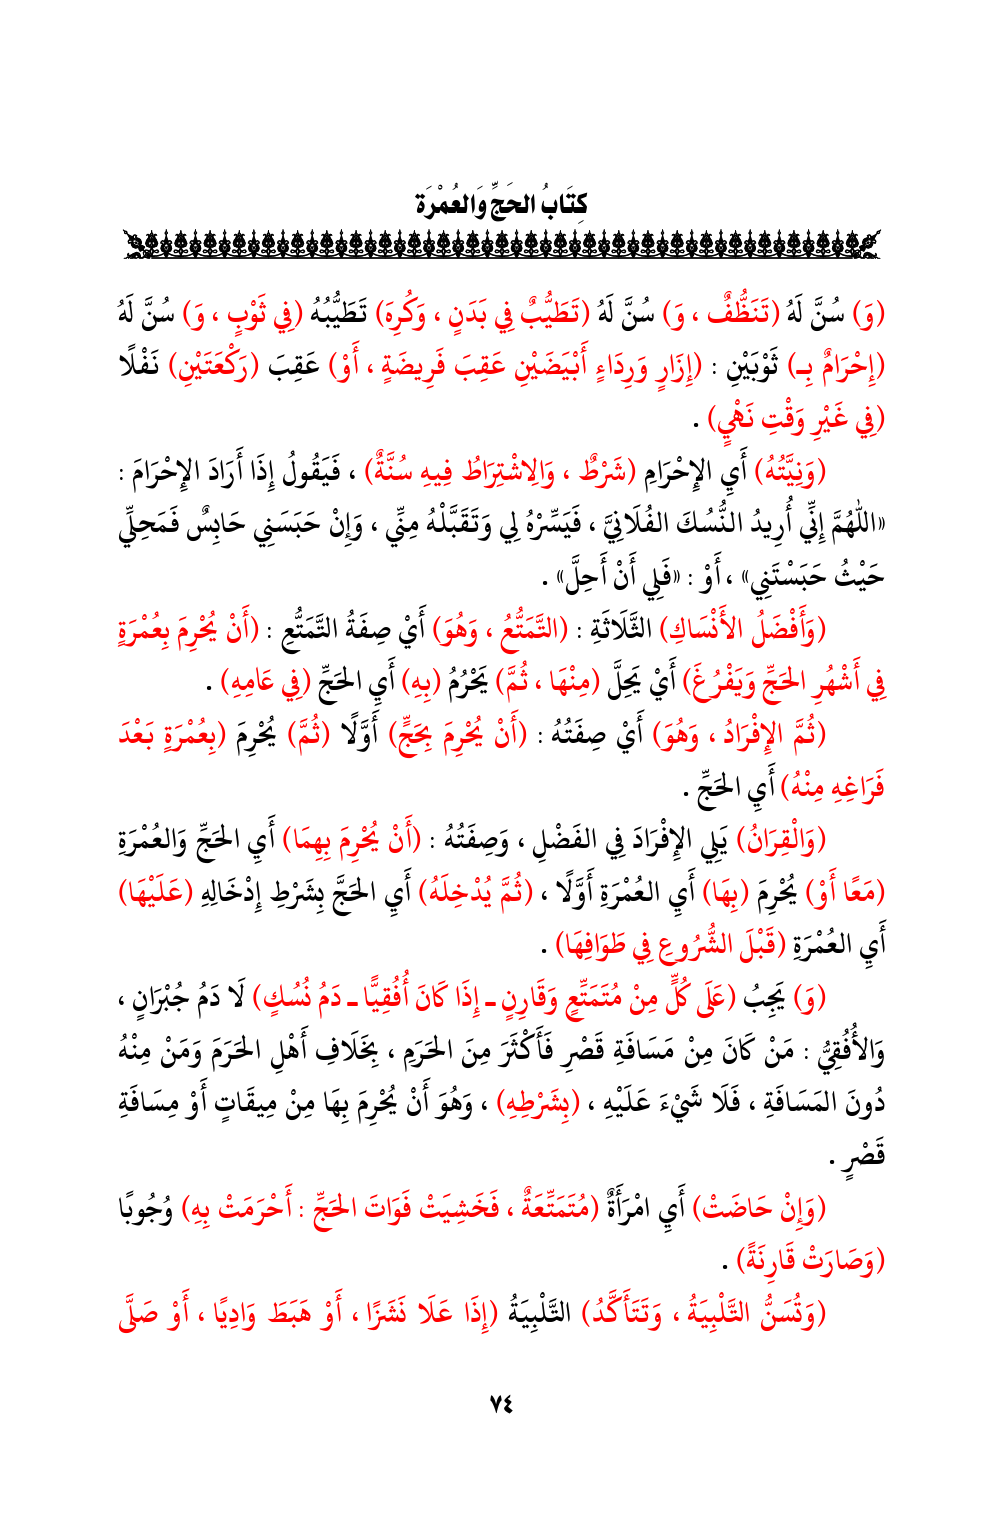 كِتَابُ الحَجِّ وَالعُمْرَة
(وَ) سُنَّ لَهُ (تَنَظُّفٌ ، وَ) سُنَّ لَهُ (تَطَيُّبٌ فِي بَدَنٍ ، وَكُرِهَ) تَطَيُّبُهُ (فِي ثَوْبٍ ، وَ) سُنَّ لَهُ
(إِحْرَامٌ بِـ) ثَوْبَيْنِ : (إِزَارٍ وَرِدَاءٍ أَبْيَضَيْنِ عَقِبَ فَرِيضَةٍ ، أَوْ) عَقِبَ (رَكْعَتَيْنِ) نَفْلًا
(فِي غَيْرِ وَقْتِ نَهْيٍ) .
(وَنِيَّتُهُ) أَيِ الإِحْرَامِ (شَرْطٌ ، وَالِاشْتِرَاطُ فِيهِ سُنَّةٌ) ، فَيَقُولُ إِذَا أَرَادَ الإِحْرَامَ :
«اللهُمَّ إِنِّي أُرِيدُ النُّسُكَ الفُلَانِيَّ ، فَيَسِّرْهُ لِي وَتَقَبَّلْهُ مِنِّي ، وَإِنْ حَبَسَنِي حَابِسٌ فَمَحِلِّي
حَيْثُ حَبَسْتَنِي» ، أَوْ : «فَلِي أَنْ أَحِلَّ» .
(وَأَفْضَلُ الأَنْسَاكِ) الثَّلَاثَةِ : (التَّمَتُّعُ ، وَهُوَ) أَيْ صِفَةُ التَّمَتُّعِ : (أَنْ يُحْرِمَ بِعُمْرَةٍ
فِي أَشْهُرِ الحَجِّ وَيَفْرُغَ) أَيْ يَحِلَّ (مِنْهَا ، ثُمَّ) يَحْرُمُ (بِهِ) أَيِ الحَجِّ (فِي عَامِهِ) .
(ثُمَّ الإِفْرَادُ ، وَهُوَ) أَيْ صِفَتُهُ : (أَنْ يُحْرِمَ بِحَجٍّ) أَوَّلًا (ثُمَّ) يُحْرِمَ (بِعُمْرَةٍ بَعْدَ
فَرَاغِهِ مِنْهُ) أَيِ الحَجِّ .
(وَالْقِرَانُ) يَلِي الإِفْرَادَ فِي الفَضْلِ ، وَصِفَتُهُ : (أَنْ يُحْرِمَ بِهِمَا) أَيِ الحَجِّ وَالعُمْرَةِ
(مَعًا أَوْ) يُحْرِمَ (بِهَا) أَيِ العُمْرَةِ أَوَّلًا ، (ثُمَّ يُدْخِلَهُ) أَيِ الحَجَّ بِشَرْطِ إِدْخَالِهِ (عَلَيْهَا)
أَيِ العُمْرَةِ (قَبْلَ الشُّرُوعِ فِي طَوَافِهَا) .
(وَ) يَجِبُ (عَلَى كُلٍّ مِنْ مُتَمَتِّعٍ وَقَارِنٍ ـ إِذَا كَانَ أُفُقِيًّا ـ دَمُ نُسُكٍ) لَا دَمُ جُبْرَانٍ ،
وَالأُفُقِيُّ : مَنْ كَانَ مِنْ مَسَافَةِ قَصْرٍ فَأَكْثَرَ مِنَ الحَرَمِ ، بِخَلَافِ أَهْلِ الحَرَمَ وَمَنْ مِنْهُ
دُونَ المَسَافَةِ ، فَلَا شَيْءَ عَلَيْهِ ، (بِشَرْطِهِ) ، وَهُوَ أَنْ يُحْرِمَ بِهَا مِنْ مِيقَاتٍ أَوْ مِسَافَةِ
قَصْرٍ .
(وَإِنْ حَاضَتْ) أَيِ امْرَأَةٌ (مُتَمَتِّعَةٌ ، فَخَشِيَتْ فَوَاتَ الحَجِّ : أَحْرَمَتْ بِهِ) وُجُوبًا
(وَصَارَتْ قَارِنَةً) .
(وَتُسَنُّ التَّلْبِيَةُ ، وَتَتَأَكَّدُ) التَّلْبِيَةُ (إِذَا عَلَا نَشَزًا ، أَوْ هَبَطَ وَادِيًا ، أَوْ صَلَّى
٧٤